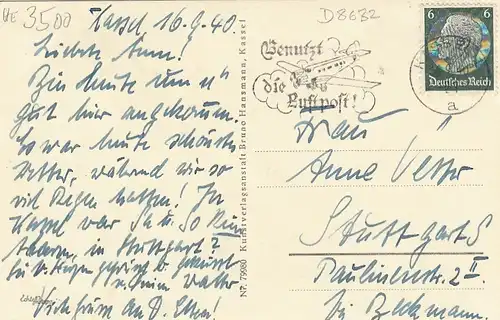 HE 3500
D8682
Kassel 16.9.40.
Liebste Anne!
Bin heute um 11 h
gut hier angekomm.
Es war heute schönstes
Wetter, während wir so
viel Regen hatten! In
Kassel war Sa u. So kein
Alarm, in Stuttgart?
Sei v. Herzen gegrüsst u. geküsst
v. Deinem
Viele Grüsse an D. Eltern!
Nr. 75980 Kunstverlagsanstalt Bruno Hansmann, Kassel
Benutzt
die
Luftpost!
6 6
Deutsches Reich
a
Frau
Anne
Stuttgart S
Paulinenstr. 2 II.
bei Beckmann.